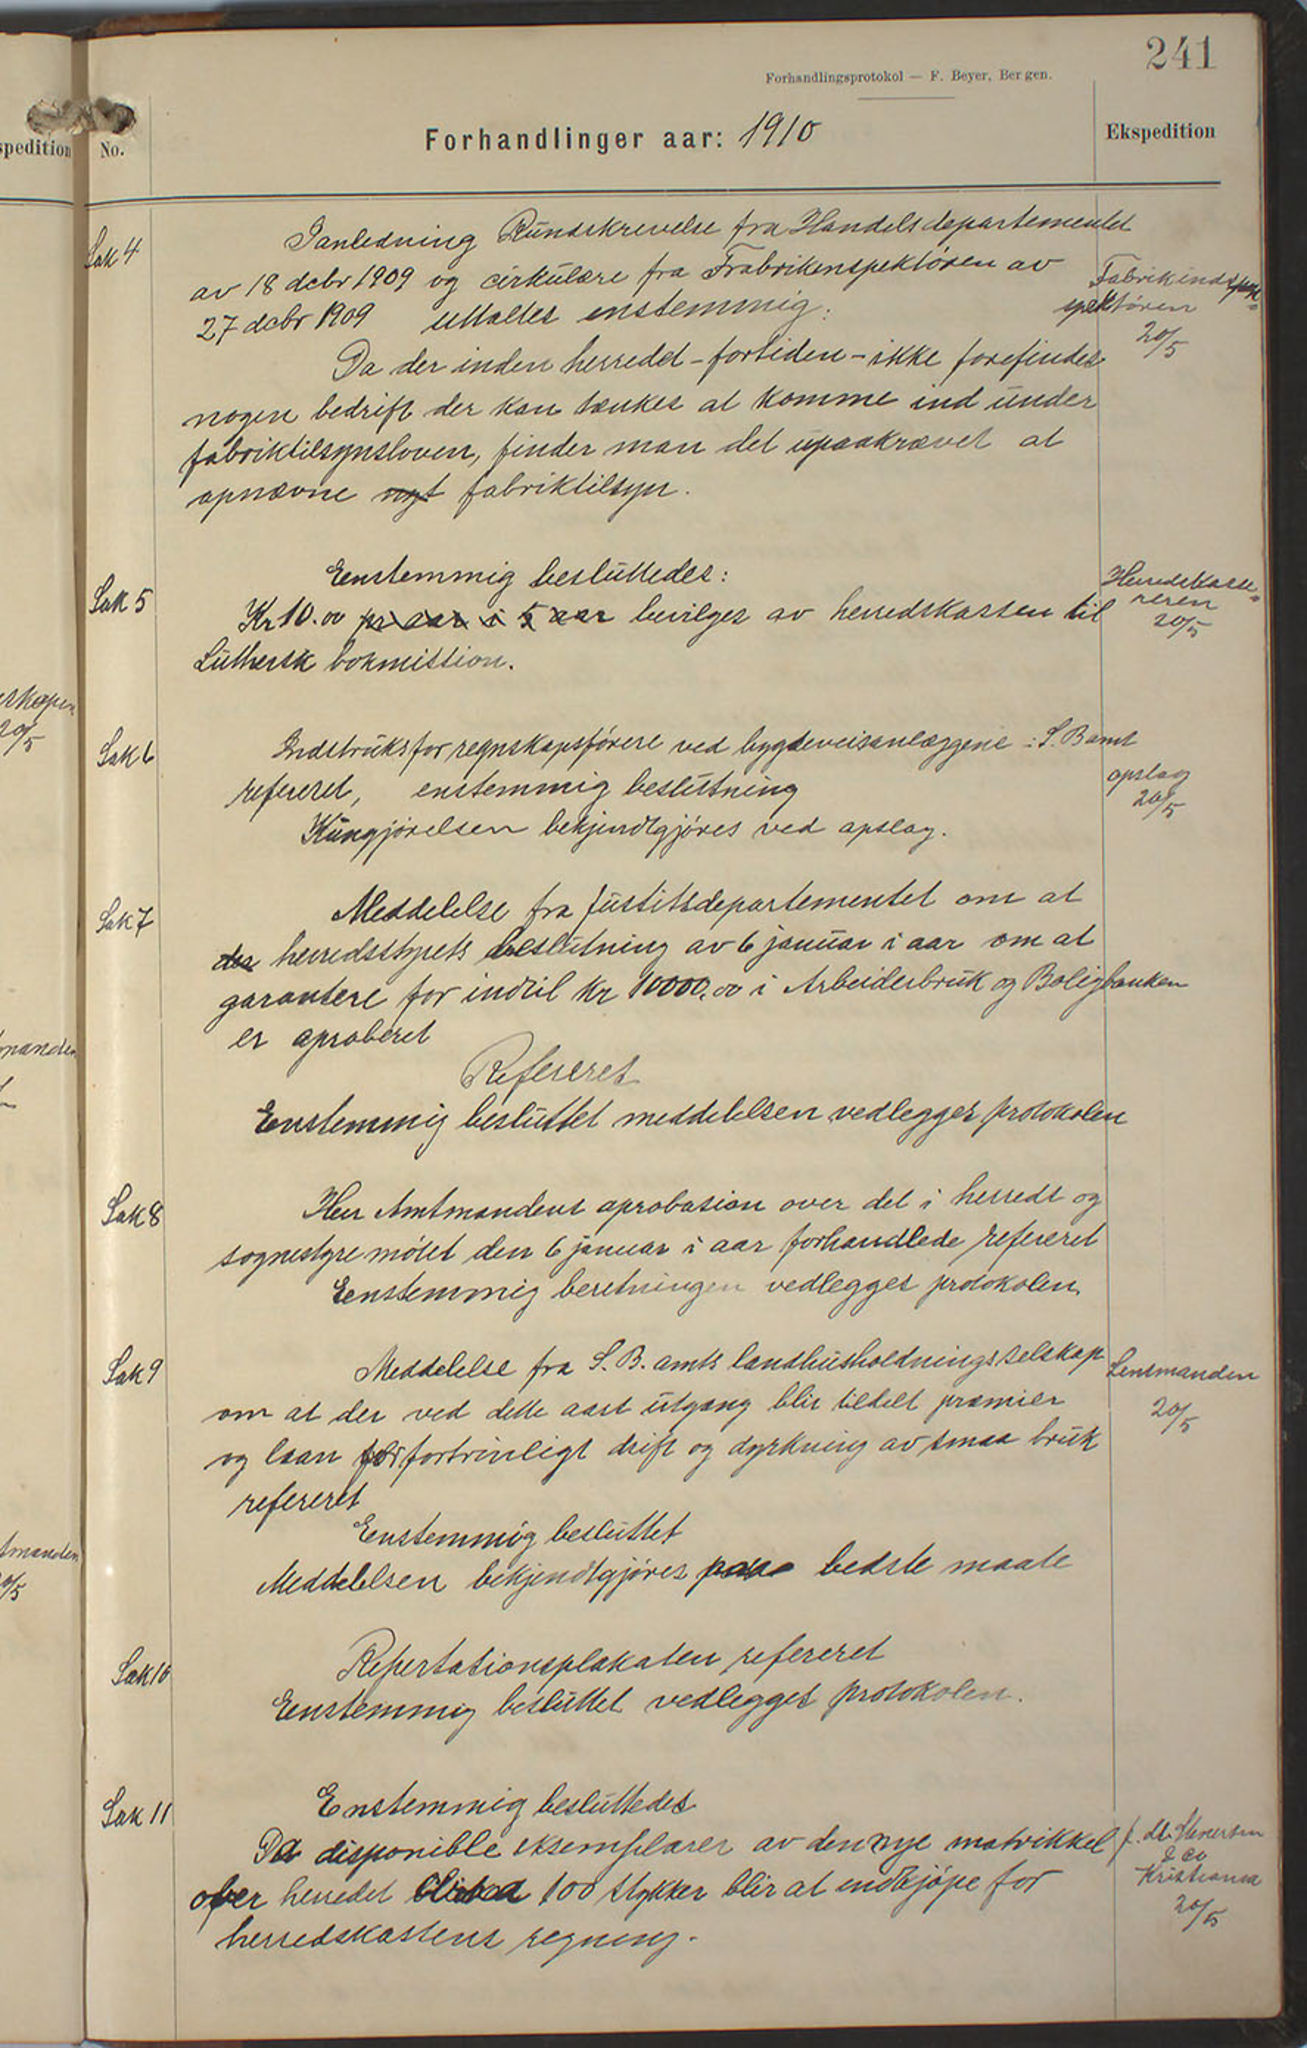 241
Forhandlingsprotokol — F. Beyer, Bergen.
spedition
No.
Forhandlinger aar: 1910
Ekspedition
Sak 4
Ianledning Rundskrevelse fra Handelsdepartementet
av 18 dcbr 1909 og cirkulære fra Frabrikenspektøren av
27 dcbr 1909 uttaltes enstemmig:
Fabrikind
spektøren
20/5
Da der inden herredet - fortiden - ikke forefindes
nogen bedrift der kan tænkes at komme ind under
fabriktilsynsloven, finder man det upaakrævet at
opnævne nyt fabriktilsyn.
Sak 5
Eenstemmig besluttedes:
Kr 10.00 pr aar i 5 aar bevilges av herredskassen til
Luthersk bokmission.
Herredskasse-
reren
20/5
Sak 6
Indstruks for regnskapsførere ved bygdeveisanlæggene i S. B amt
refereret, enstemmig beslutning
Kungjørelsen bekjendtgjøres ved opslag.
opslag
20/5
Sak 7
Meddelelse fra Justitsdepartementet om at
des herredsstyrets beslutning av 6 januar i aar om at
garantere for indtil Kr 10000.00 i Arbeiderbruk og Boligbanken
er aproberet
Refereret
Enstemmig besluttet meddelelsen vedlegges protokolen
Sak 8
Herr Amtmandens aprobasion over det i herreds og
sognestyremøtet den 6 januar i aar forhandlede refereret
Eenstemmig beretningen vedlegges protokolen
Sak 9
Meddelelse fra S. B. amts landhusholdningsselskap
om at der ved dette aars utgang blir tildelt præmier
og laan for fortrinligt drift og dyrkning av smaa bruk
refereret
Lensmanden
20/5
Eenstemmig besluttet
Meddelelsen bekjendtgjøres paa bedste maate
Sak 10
Repertationsplakaten refereret
Eenstemmig besluttet vedlegges protokolen.
Sak 11
Enstemmig besluttedes
Da disponible eksemplarer av den nye matrikkel
over herredet 100 stykker blir at indkjøpe for
herredskassens regning.
& co
Kristiania
20/5
erskapen
20/5
manden
tmanden
0/5